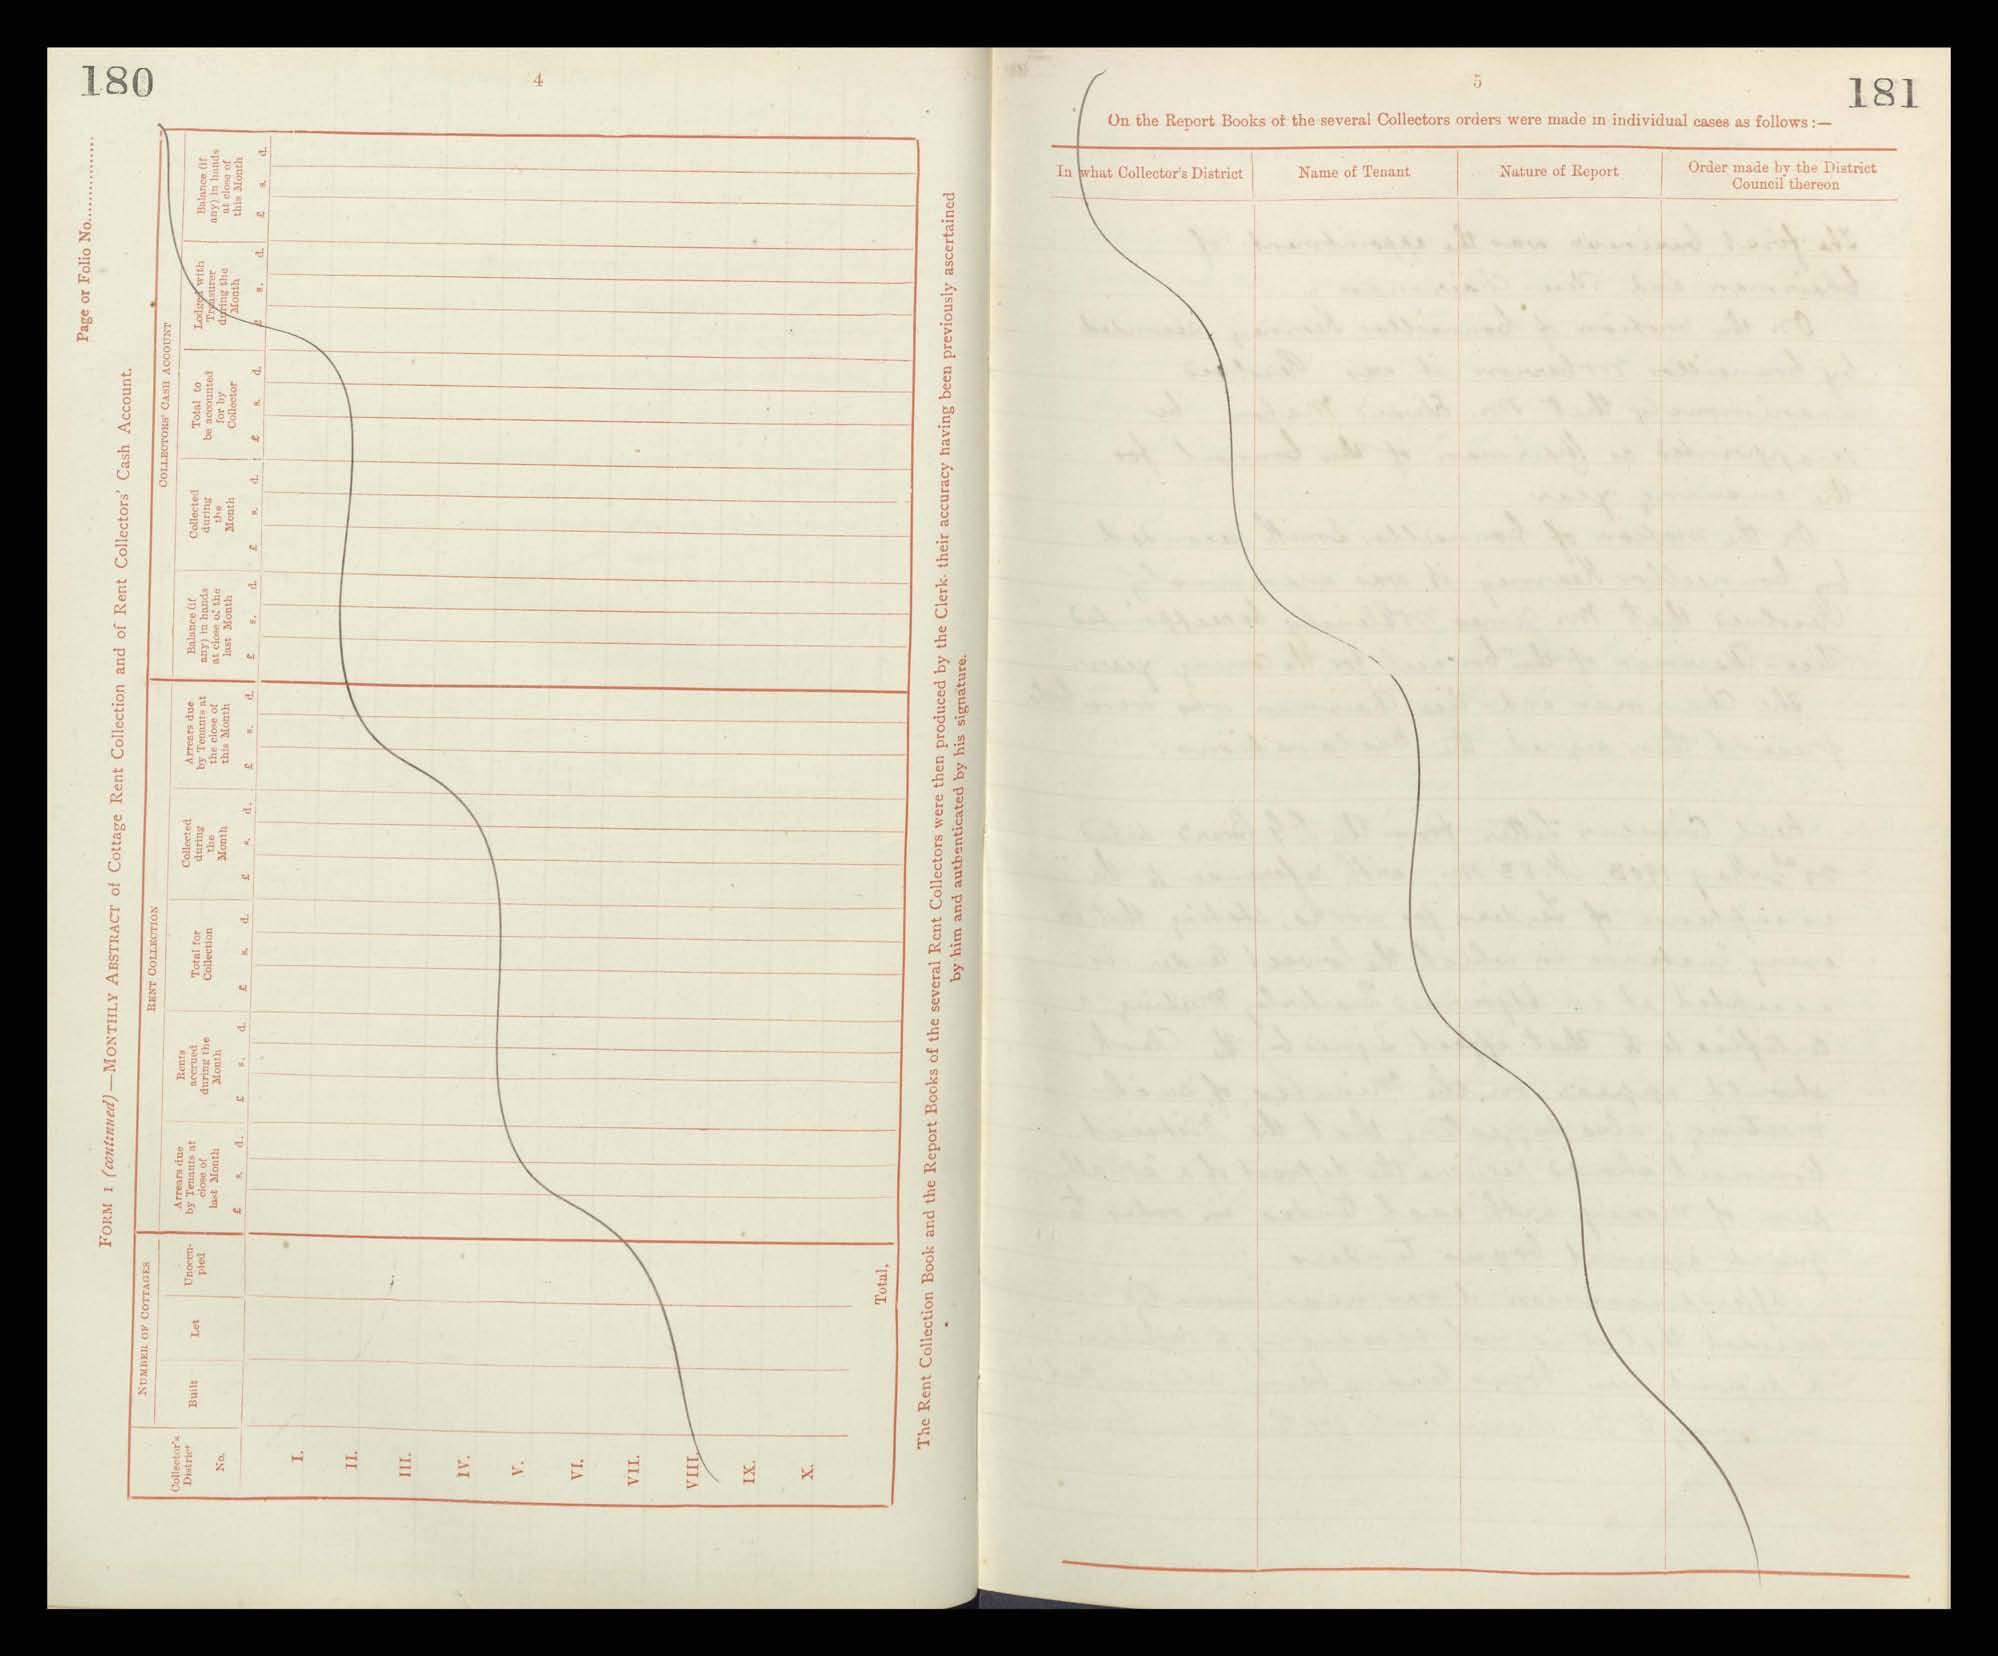 180
4
Page or Folio No................
FORM 1 (continued)—MONTHLY ABSTRACT of Cottage Rent Collection and of Rent Collectors' Cash Account.
NUMBER OF COTTAGES
RENT COLLECTION
COLLECTORS' CASH ACCOUNT
Collector's
District
No.
Built
Let
Unoccu-
pied
Arrears due
by Tenants at
close of
last Month
Rents
accrued
during the
Month
Total for
Collection
Collected
during
the
Month
Arrears due
by Tenants at
the close of
this Month
Balance (if
any) in hands
at close of the
last Month
Collected
during
the
Month
Total to
be accounted
for by
Collector
Lodged with
Treasurer
during the
Month
Balance (if
any) in hands
at close of
this Month
£ s. d. £ s. d. £ s. d. £ s. d. £ s. d. £ s. d. £ s. d. £ s. d. £ s. d. £ s. d.
I.
II.
III.
IV.
V.
VI.
VII.
VIII.
IX.
X.
Total,
The Rent Collection Book and the Report Books of the several Rent Collectors were then produced by the Clerk, their accuracy having been previously ascertained
by him and authenticated by his signature.
5
181
On the Report Books of the several Collectors orders were made in individual cases as follows:—
In what Collector's District
Name of Tenant
Nature of Report
Order made by the District
Council thereon